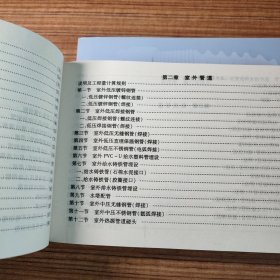 第二章 室外管道
说明及工程量计算规则
第一节 室外低压镀锌钢管
一、低压镀锌钢管(螺纹连接)
二、低压镀锌钢管(焊接)
第二节 室外低压焊接钢管
一、低压焊接钢管(螺纹连接)
二、低压焊接钢管(焊接)
第三节 室外低压无缝钢管(焊接)
第四节 室外低压直埋保温钢管(焊接)
第五节 室外低压不锈钢管(电弧焊接)
第六节 室外PVC-U给水塑料管埋设
第七节 室外给水铸铁管埋设
一、给水铸铁管(石棉水泥接口)
二、给水铸铁管(胶圈接口)
第八节 室外排水铸铁管埋设
第九节 水塔配管
第十节 室外中压无缝钢管(焊接)
第十一节 室外中压不锈钢管(氩弧焊接)
第十二节 室外热源管道碰头